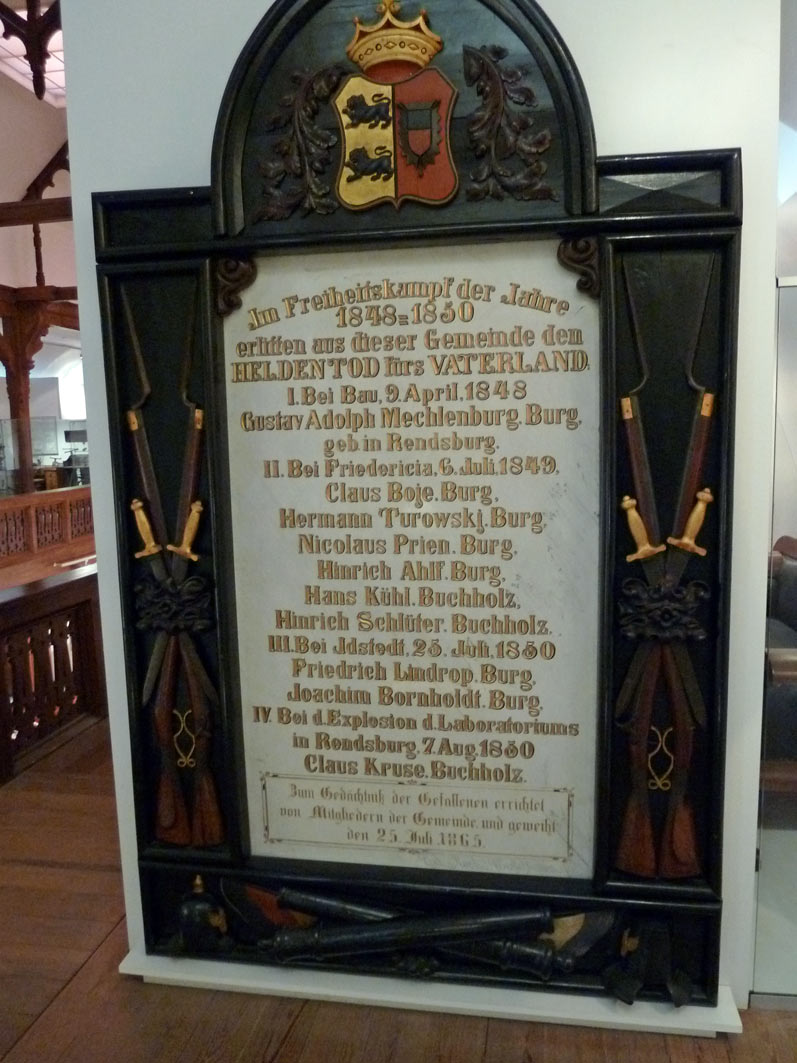 Im Freiheitskampf der Jahre
1848=1850
erlitten aus dieser Gemeinde den
HELDENTOD fürs VATERLAND.
I. Bei Bau, 9. April, 1848
Gustav Adolph Mechlenburg. Burg,
geb. in Rendsburg.
II. Bei Friedericia, 6. Juli. 1849.
Claus Boje. Burg,
Hermann Turowskj. Burg,
Nicolaus Prien. Burg,
Hinrich Ahlf. Burg,
Hans Kühl. Buchholz,
Hinrich Schlüter. Buchholz.
III. Bei Idstedt, 25. Juli, 1850.
Friedrich Lindrop. Burg,
Joachim Bornholdt. Burg,
IV. Bei d. Explosion d. Laboratoriums
in Rendsburg. 7. Aug. 1850
Claus Kruse. Buchholz.
Zum Gedächtniß der Gefallenen errichtet
von Mitgliedern der Gemeinde und geweiht
den 25. Juli 1865.